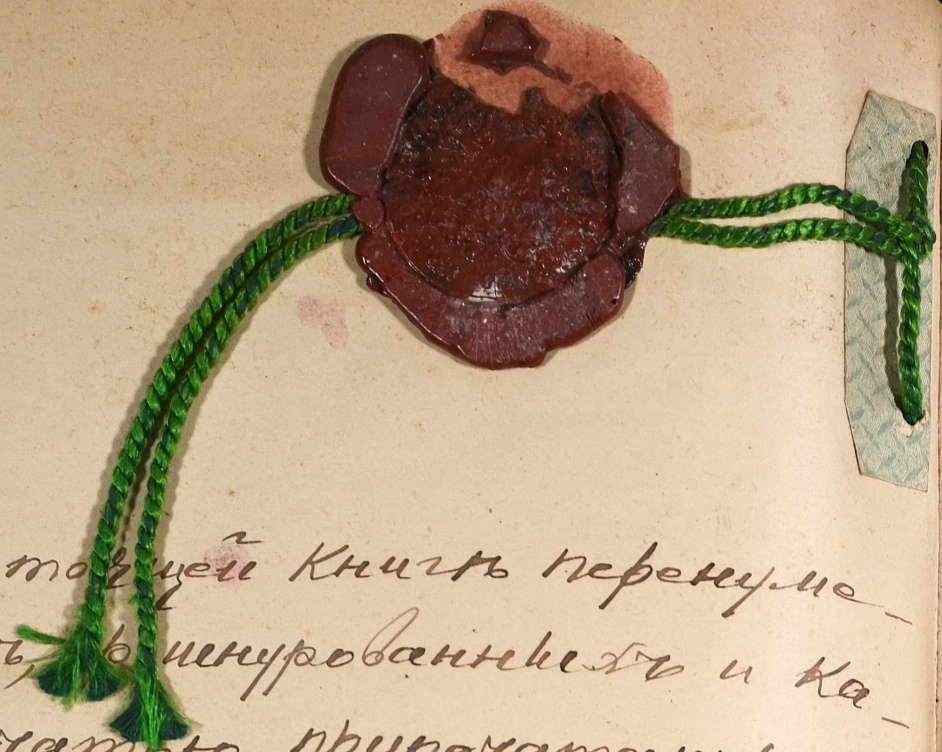 тоящей книгѣ перенуме-
ъ, прошнурованныхъ и ка-
чатью припечатанн